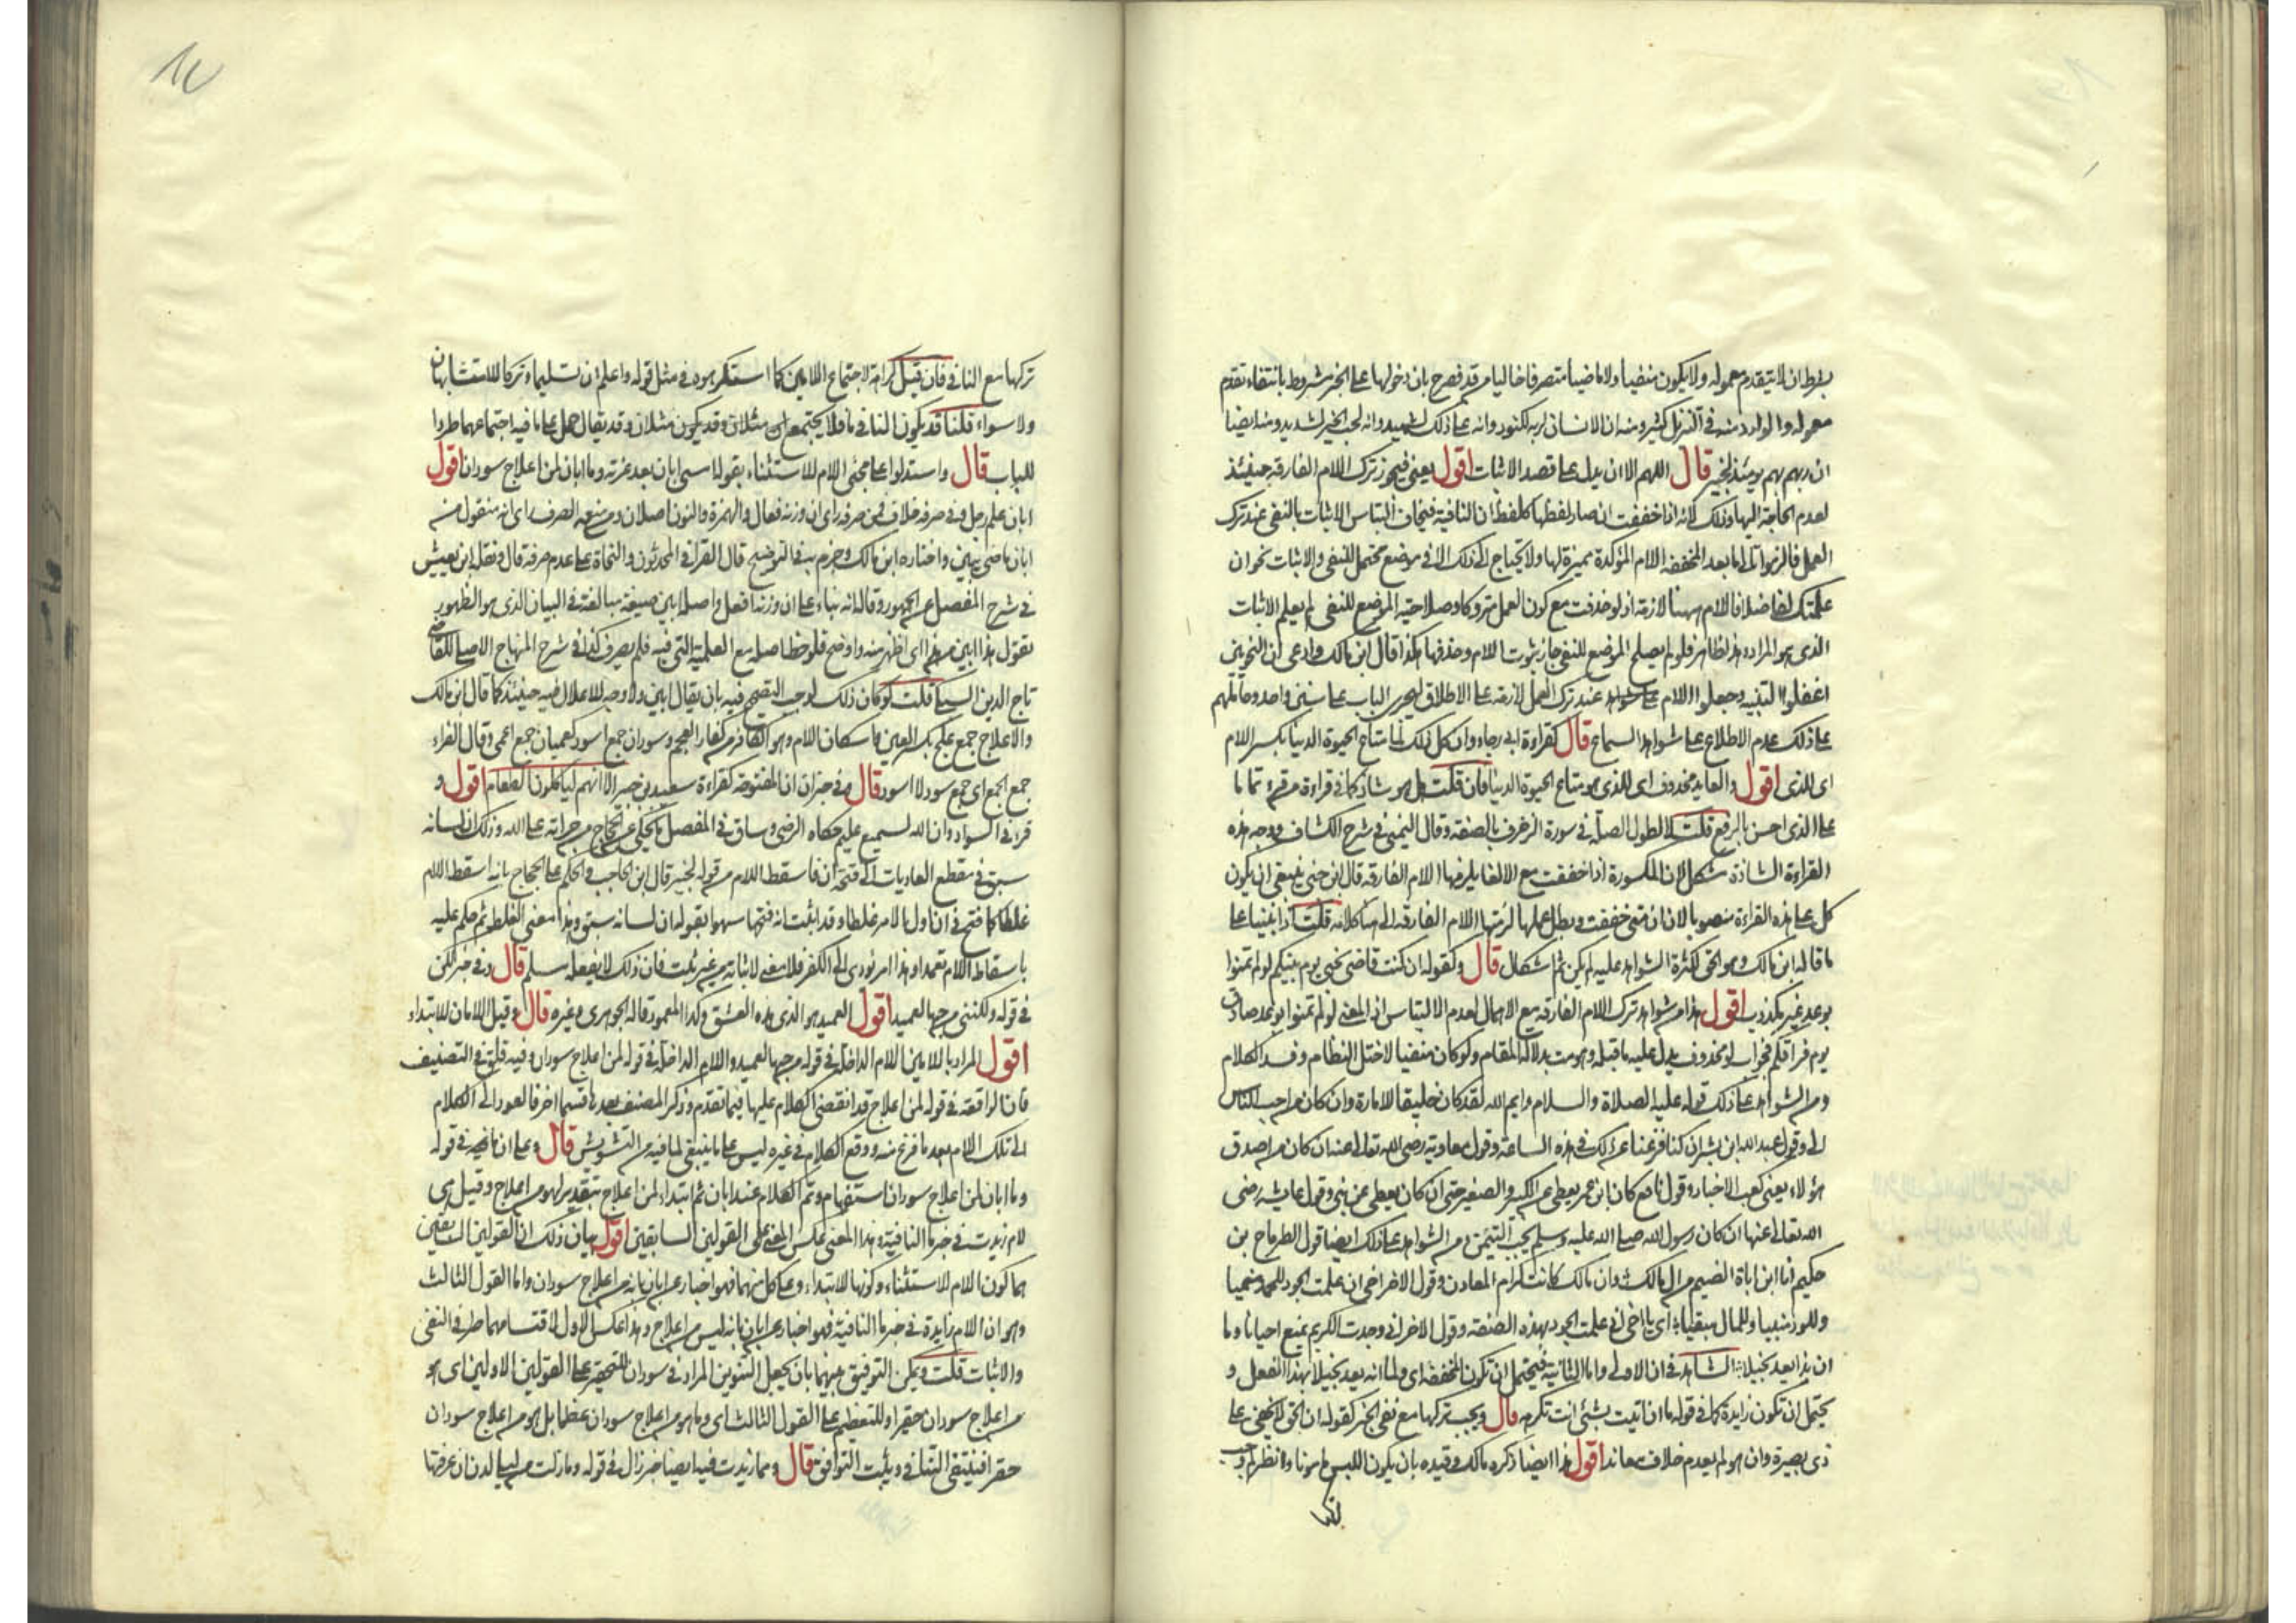 بشرط ان لا يتقدم معموله ولا يكون منفيا ولا ماضيا متصرفا خاليا من قد فصرح بان دخولها على الخبر مشروط بانتفاء تقدم
معموله والوارد منه في التنزيل كثير ومنه ان الانسان لربه لكنود وانه على ذلك لشهيد وانه لحب الخير لشديد ومنه ايضا
ان ربهم بهم يومئذ لخبير قال اللهم الا ان يدل على قصد الاثبات اقول يعني فيجوز ترك اللام الفارقة حينئذ
لعدم الحاجة اليها وذلك لانه اذا خففت ان صار لفظها كلفظ ان النافية فيخاف التباس الاثبات بالنفي عند ترك
العمل فالزموا تالى ما بعد المخففة اللام المؤكدة مميزة لها ولا يحتاج الى ذلك الا في موضع محتمل للنفي والاثبات نحو ان
علمتك لفاضلا فاللام ههنا لازمة اذ لو حذفت مع كون العمل متروكا وصلاحية الموضع للنفي لم يعلم الاثبات
الذي هو المراد فلو لم يصلح الموضع للنفي جاز ثبوت اللام وحذفها هكذا قال ابن مالك وادعى ان النحويين
اغفلوا التنبيه وجعلوا اللام عند ترك العمل لازمة على الاطلاق ليجري الباب على سنن واحد وحاملهم
على ذلك عدم الاطلاع على شواهد السماع قال كقراءة ابي رجاء وان كل ذلك لما متاع الحيوة الدنيا بكسر اللام
اي للذي اقول والعايد محذوف اي للذي هو متاع الحيوة الدنيا فان قلت هل هو شاذ كما في قراءة من قرء تماما
على الذي احسن بالرفع قلت لا لطول الصلة في سورة الزخرف بالصفة وقال اليمني في شرح الكشاف ووجه هذه
القراءة الشاذة مشكل لان المكسورة اذا خففت مع الالغاء يلزمها اللام الفارقة قال ابن جني ينبغي ان يكون
كل على هذه القراءة منصوبا لان ان متى خففت وبطل عملها لزمتها اللام الفارقة الى هنا كلامه قلت اذا بنينا على
ما قاله ابن مالك وهو الحق لكثرة الشواهد عليه لم يكن ثم اشكال قال وكقوله ان كنت قاضي نحبي يوم بينكم لو لم تمنوا
بوعد غير مكذوب اقول هذا من شواهد ترك اللام الفارقة مع الاهمال لعدم الالتباس اذ المعنى لو لم تمنوا بوعد صادق
يوم فراقكم فجواب لو محذوف يدل عليه ما قبله وهو مت بدلالة المقام ولو كان منفيا لاختل النظام وفسد الكلام
ومن الشواهد على ذلك قوله عليه الصلاة والسلام وايم الله لقد كان خليقا للامارة وان كان من احب الناس
الي وقول عبد الله ابن بشر ان كنا فرغنا في هذه الساعة وقول معاوية رضي الله تعالى عنه ان كان من اصدق
هؤلاء يعني كعب الاحبار وقول نافع كان ابن عمر يعطي عن الكبير والصغير حتى ان كان يعطي عن بني وقول عايشة رضي
الله تعالى عنها ان كان رسول الله صلى الله عليه وسلم يحب التيمن ومن الشواهد على ذلك ايضا قول الطرماح بن
حكيم انا ابن اباة الضيم من ال مالك وان مالك كانت كرام المعادن وقول الاخر اخي ان علمت الجود للحمد منميا
وللود مثبتا وللمال مفنيا اي يا اخي اني علمت الجود بهذه الصفة وقول الاخر اني وجدت الكريم يمنع احيانا وما
ان بذا يعد بخيلا الشاهد في ان الاولى واما الثانية فيحتمل ان تكون المخففة اي ولما انه يعد بخيلا بهذا الفعل و
يحتمل ان تكون زايدة كما في قوله ما ان اتيت بشئ انت تكرهه قال ويجب تركها مع نفي الخبر كقوله ان الحق لا يخفى على
ذي بصيرة وان هو لم يعدم خلاف معاند اقول هذا ايضا ذكره مالك وقيده بان يكون اللبس مامونا وانظر لم وجب
تركها
تركها مع النافي فان قيل كراهة لاجتماع اللامين كما استكرهوه في مثل قوله واعلم ان تسليما وتركا للا متشابهان
ولا سواء قلنا قد يكون النافي ما فلا يجتمع مثلان وقد يكون مثلان وقد يقال حمل على ما فيه اجتماعهما طردا
للباب قال واستدلوا على مجئ اللام للاستثناء بقوله امسى ابان بعد عزته وما ابان لمن اعلاج سودان اقول
ابان علم رجل وفي صرفه خلاف فمن صرفه راى ان وزنه فعال والهمزة والنون اصلان ومن منعه الصرف راى انه منقول من
ابان ماضي يبين واختاره ابن مالك وجزم به في التوضيح قال القرافي المحدثون والنحاة على عدم صرفه قال ونقله ابن يعيش
في شرح المفصل عن الجمهور وقال انه بناء على ان وزنه افعل واصله ابين صيغة مبالغة في البيان الذي هو الظهور
يقول هذا ابين من هذا اي اظهر منه واوضح فلوحظ اصله مع العلمية التي فيه فلم يصرف كذا في شرح المنهاج الاصلي للقاضي
تاج الدين السبكي قلت لو كان ذلك لوجب التصحيح فيه بان يقال ابين ولا وجه للاعلال فيه حينئذ كما قال ابن مالك
والاعلاج جمع علج بكسر العين واسكان اللام وهو الكافر من كفار العجم وسودان جمع اسود كعميان جمع اعمى وقال الفراء
جمع الجمع اي جمع سود لا اسود قال وفي خبر ان المفتوحة كقراءة سعيد بن جبير الا انهم لياكلون الطعام اقول و
قرئ في السواد وان الله لسميع عليم حكاه الرضي وساق في المفصل ما يحكى عن الحجاج من جراته على الله وذلك ان لسانه
سبق في مقطع العاديات الى فتحة ان فاسقط اللام من قوله لخبير قال ابن الحاجب والحكم على الحجاج بانه اسقط اللام
غلطا كما فتح في ان اول بالامر غلطا وقد اثبت انه فتحها سهوا بقوله ان لسانه سبق وهذا معنى الغلط ثم حكم عليه
باسقاط اللام تعمدا وهذا امر يؤدي الى الكفر فلا معنى لاثباته من غير ثبت فان ذلك لا يفعله مسلم قال وفي خبر لكن
في قوله ولكنني من حبها لعميد اقول العميد هو الذي هده العشق وكذا المعمود قاله الجوهري وغيره قال وقيل اللامان للابتداء
اقول المراد باللامين اللام الداخلة في قوله من حبها لعميد واللام الداخلة في قوله لمن اعلاج سودان وفيه قلق في التصنيف
فان الواقعة في قوله لمن اعلاج قد انقضى الكلام عليها فيما تقدم وذكر المصنف بعدها قسما اخر فالعود الى الكلام
الى تلك اللام بعد ما فرغ منه ووقع الكلام في غيره ليس على ما ينبغي لما فيه من التشويش قال وعلى ان ما في قوله
وما ابان لمن اعلاج سودان استفهام وتم الكلام عند ابان ثم ابتداء لمن اعلاج بتقدير لهو من اعلاج وقيل هي
لام زيدت في خبر ما النافية وهذا المعنى عكس المعنى على القولين السابقين اقول بيان ذلك ان القولين السابقين
هما كون اللام للاستثناء وكونها للابتداء وعلى كل منهما فهو اخبار عن ابان بانه من اعلاج سودان واما القول الثالث
وهو ان اللام زايدة في خبر ما النافية فهو اخبار عن ابان بانه ليس من اعلاج وهذا عكس الاول لاقتسامهما طرفي النفي
والاثبات قلت ويمكن التوفيق بينهما بان يجعل التنوين المراد في سودان للتحقير على القولين الاولين اي هو
من اعلاج سودان حقيرا وللتعظيم على القول الثالث اي وما هو من اعلاج سودان عظما بل هو من اعلاج سودان
حقرا فينتفي التنافي ويثبت التوافق قال ومما زيدت فيه ايضا خبر زال في قوله وما زلت من ليلى لدن ان عرفتها